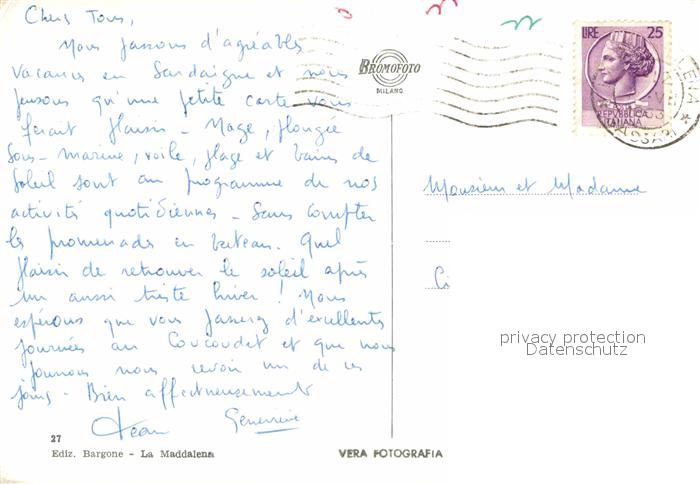 Chers Tous,
Nous passons d'agréables
vacances en Sardaigne et nous
pensons qu'une petite carte vous
ferait plaisir - Nage, plongée
sous-marine, voile, plage et bains de
soleil sont au programme de nos
activités quotidiennes - Sans compter
les promenades en bateau. Quel
plaisir de retrouver le soleil après
un aussi triste hiver ! Nous
espérons que vous passerez d'excellentes
journées au Coucoudet et que nous
pourrons nous revoir un de ces
jours - Bien affectueusement
Jean Geneviève
27
Ediz. Bargone - La Maddalena
VERA FOTOGRAFIA
BROMOFOTO
MILANO
LIRE 25
REPVBBLICA
ITALIANA
Monsieur et Madame
privacy protection
Datenschutz